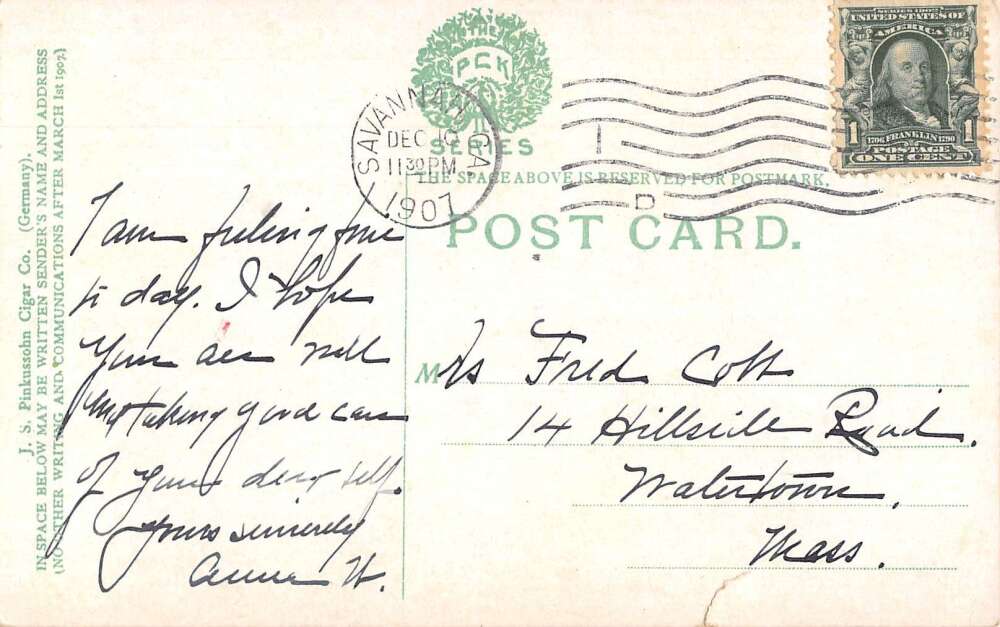 J. S. Pinkussohn Cigar Co. (Germany).
IN SPACE BELOW MAY BE WRITTEN SENDER'S NAME AND ADDRESS
(NO OTHER WRITING AND COMMUNICATIONS AFTER MARCH 1st 1907.
THE
PCK
SERIES
SAVANNAH, GA.
DEC 16
11 30 PM
1907
THE SPACE ABOVE IS RESERVED FOR POSTMARK.
POST CARD.
D
SERIES 1902
UNITED STATES OF
AMERICA
1 1
1706 FRANKLIN 1790
POSTAGE
ONE CENT
I am feeling fine
to day. I hope
you are well
and taking good care
of your dear self.
Yours sincerely
Annie H.
Mrs Fred Cott
14 Hillside Road.
Watertown.
Mass.